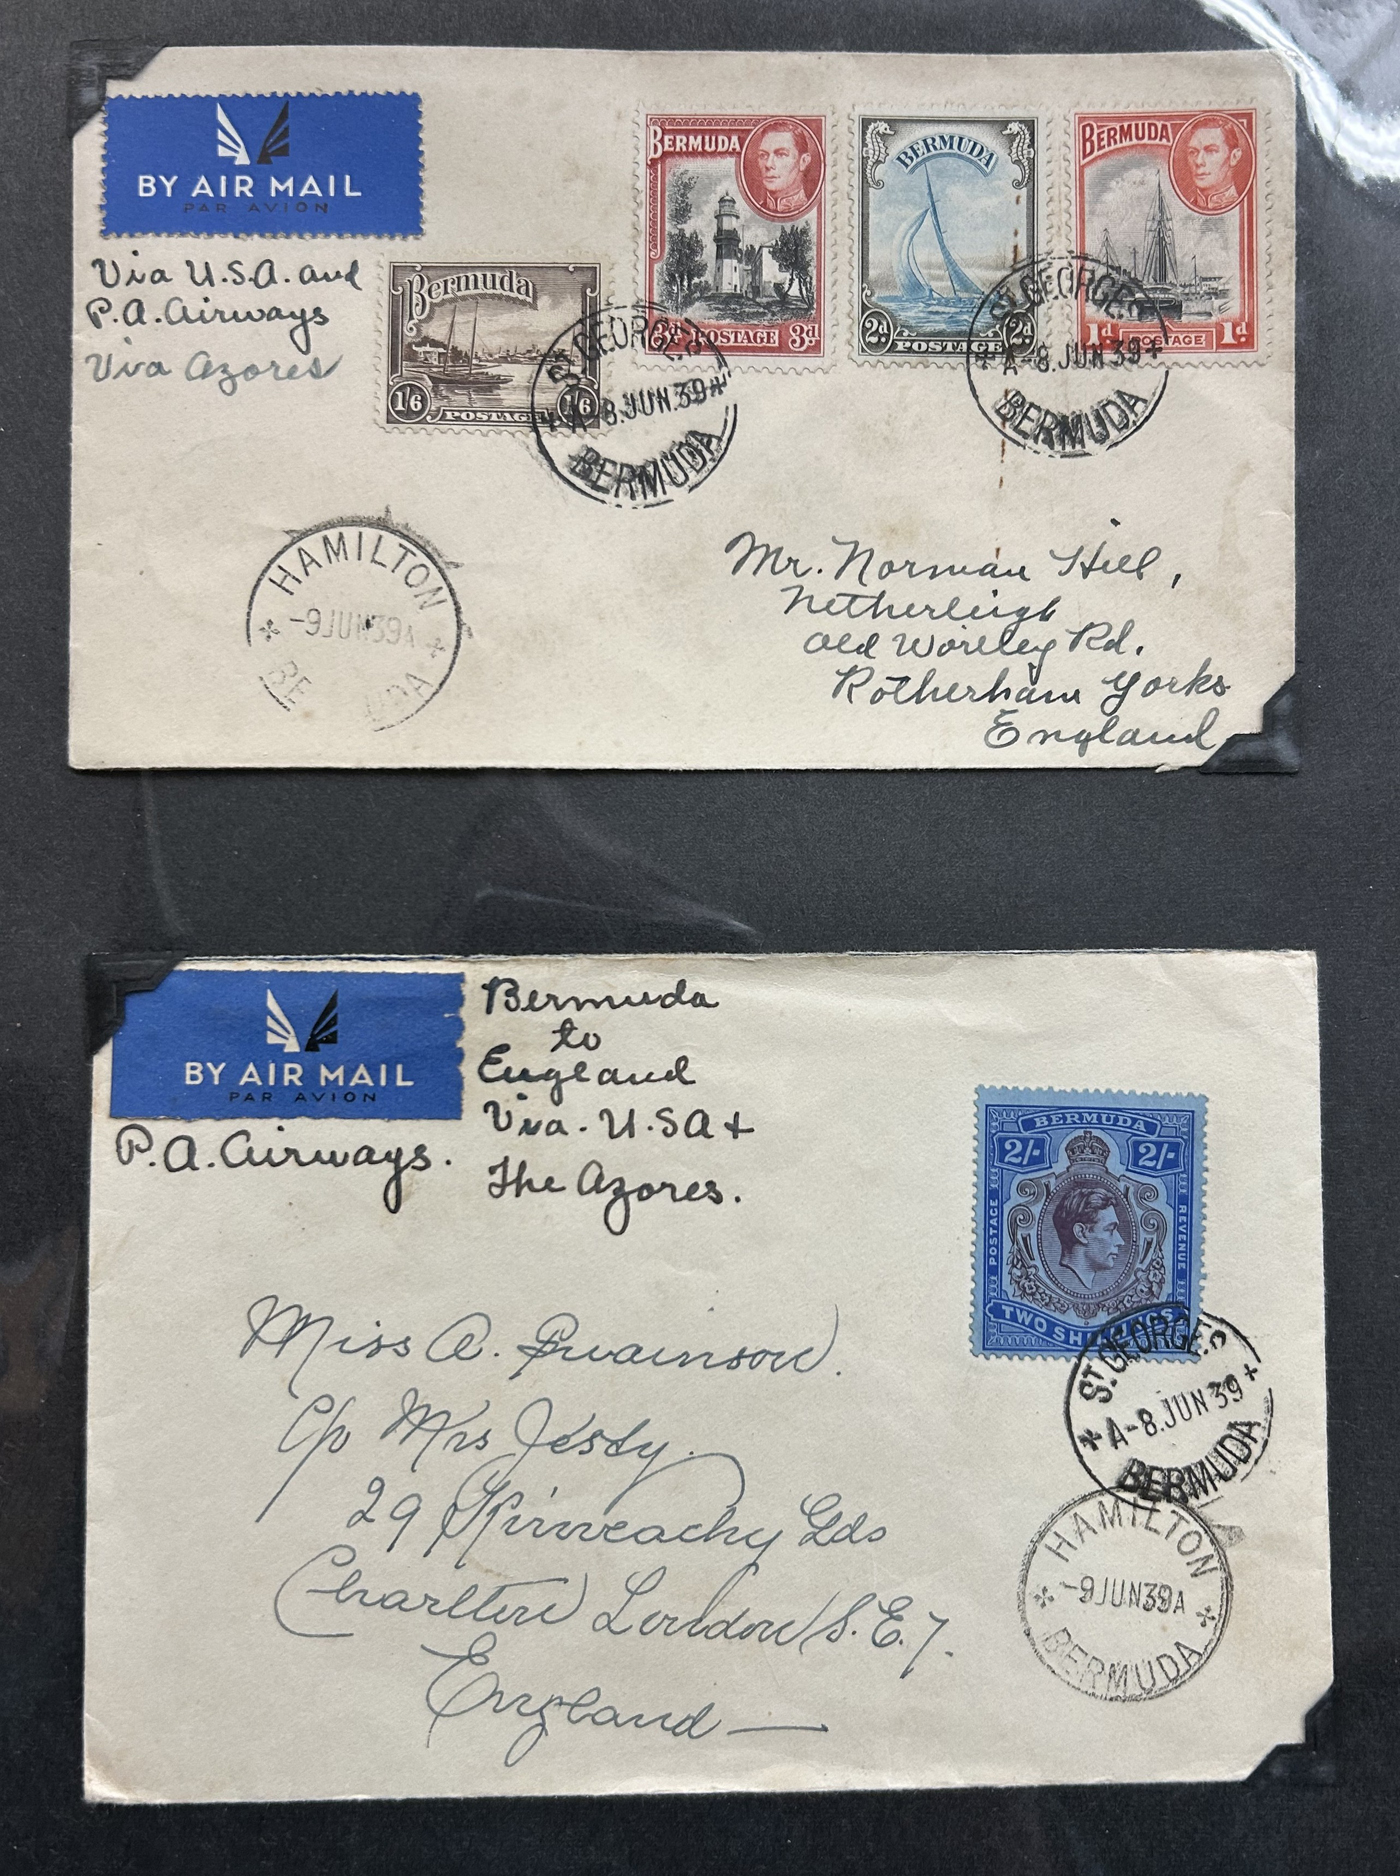 BY AIR MAIL
PAR AVION
Via U.S.A. and
P.A. Airways
Via Azores
Bermuda
1/6 POSTAGE 1/6
BERMUDA
3d POSTAGE 3d
BERMUDA
2d POSTAGE 2d
BERMUDA
1d POSTAGE 1d
ST. GEORGES
A -8.JUN.39
BERMUDA
ST. GEORGES
A -8.JUN 39
BERMUDA
HAMILTON
-9JUN39A
BE UDA
Mr. Norman Hill,
Netherleigh
Old Wortley Rd.
Rotherham Yorks
England
BY AIR MAIL
PAR AVION
P.A. Airways.
Bermuda
to
England
Via. U.S A +
The Azores.
BERMUDA
2/- 2/-
POSTAGE REVENUE
TWO SHILLINGS
ST. GEORGES
A-8.JUN 39
BERMUDA
HAMILTON
-9JUN39A
BERMUDA
Miss A. Swainson.
c/o Mrs Jesty.
29 Gds
Charlton London S.E.7.
England